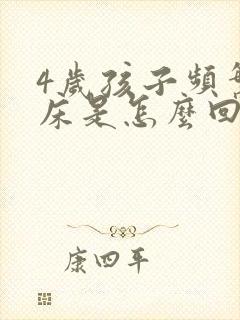 4歲孩子頻
床是怎麼回
康四平